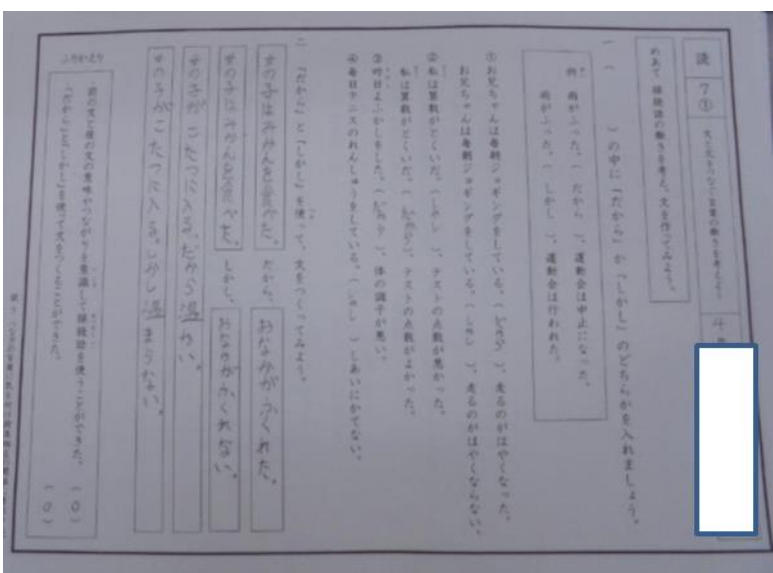 読 7① 文と文をつなぐ言葉の働きを考えよう 4年
めあて 接続語の働きを考え、文を作ってみよう。
一 ( )の中に「だから」か「しかし」のどちらかを入れましょう。
例 雨がふった。(だから)、運動会は中止になった。
雨がふった。(しかし)、運動会は行われた。
①お兄ちゃんは毎朝ジョギングをしている。(だから)、走るのがはやくなった。
お兄ちゃんは毎朝ジョギングをしている。(しかし)、走るのがはやくならない。
②私は算数がとくいだ。(しかし)、テストの点数が悪かった。
私は算数がとくいだ。(だから)、テストの点数がよかった。
③昨日よふかしをした。(だから)、体の調子が悪い。
④毎日テニスのれんしゅうをしている。(しかし)しあいにかてない。
二 「だから」と「しかし」を使って、文をつくってみよう。
女の子はみかんを食べた。だから、おなかがふくれた。
女の子はみかんを食べた。しかし、おなかがふくれない。
女の子がこたつに入る。だから温かい。
女の子がこたつに入る。しかし温まらない。
ふりかえり
・前の文と後の文の意味やつながりを意識して接続語を使うことができた。(○)
・「だから」と「しかし」を使って文をつくることができた。(○)